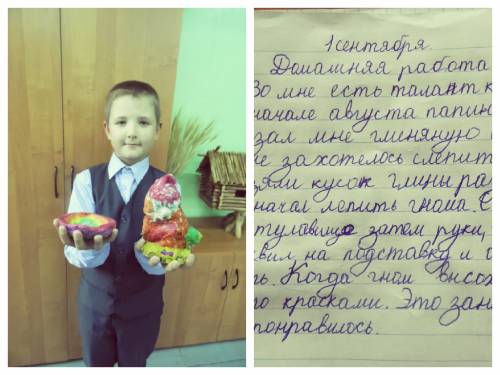 1 сентября.
Домашняя работа
Во мне есть талант к
начале августа папин
зал мне глиняную
не захотелось слепит
зяли кусок глины раз
начал лепить гнома. С
туловище затем руки,
вил на подставку и о
ть. Когда гном высох
го красками. Это зан
понравилось.